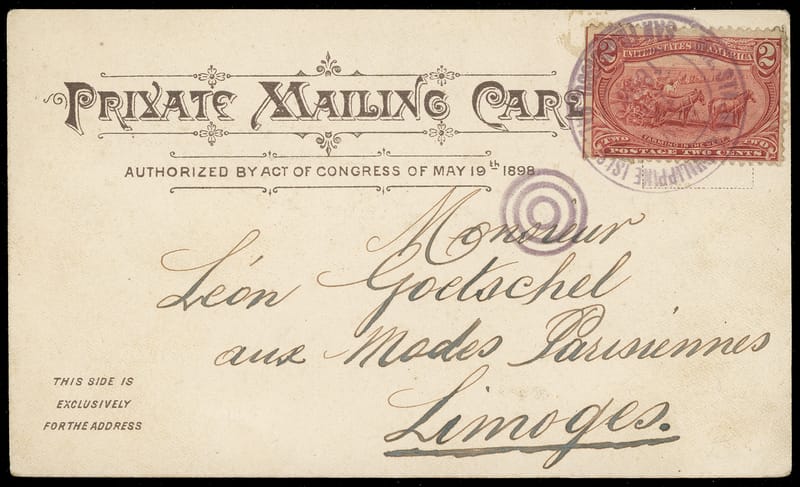 PRIVATE MAILING CARD
AUTHORIZED BY ACT OF CONGRESS OF MAY 19th 1898.
2 UNITED STATES OF AMERICA 2
FARMING IN THE WEST.
TWO TWO
POSTAGE TWO CENTS
PHILIPPINE ISL
Monsieur
Léon Goetschel
aux Modes Parisiennes
Limoges.
THIS SIDE IS
EXCLUSIVELY
FOR THE ADDRESS